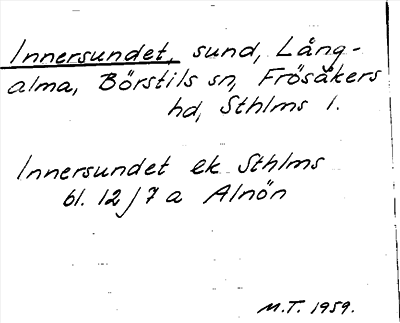 Innersundet, sund, Lång-
alma, Börstils sn, Frösåkers
hd, Sthlms l.
Innersundet ek Sthlms
bl. 12/7 a Alnön
M.T. 1959.